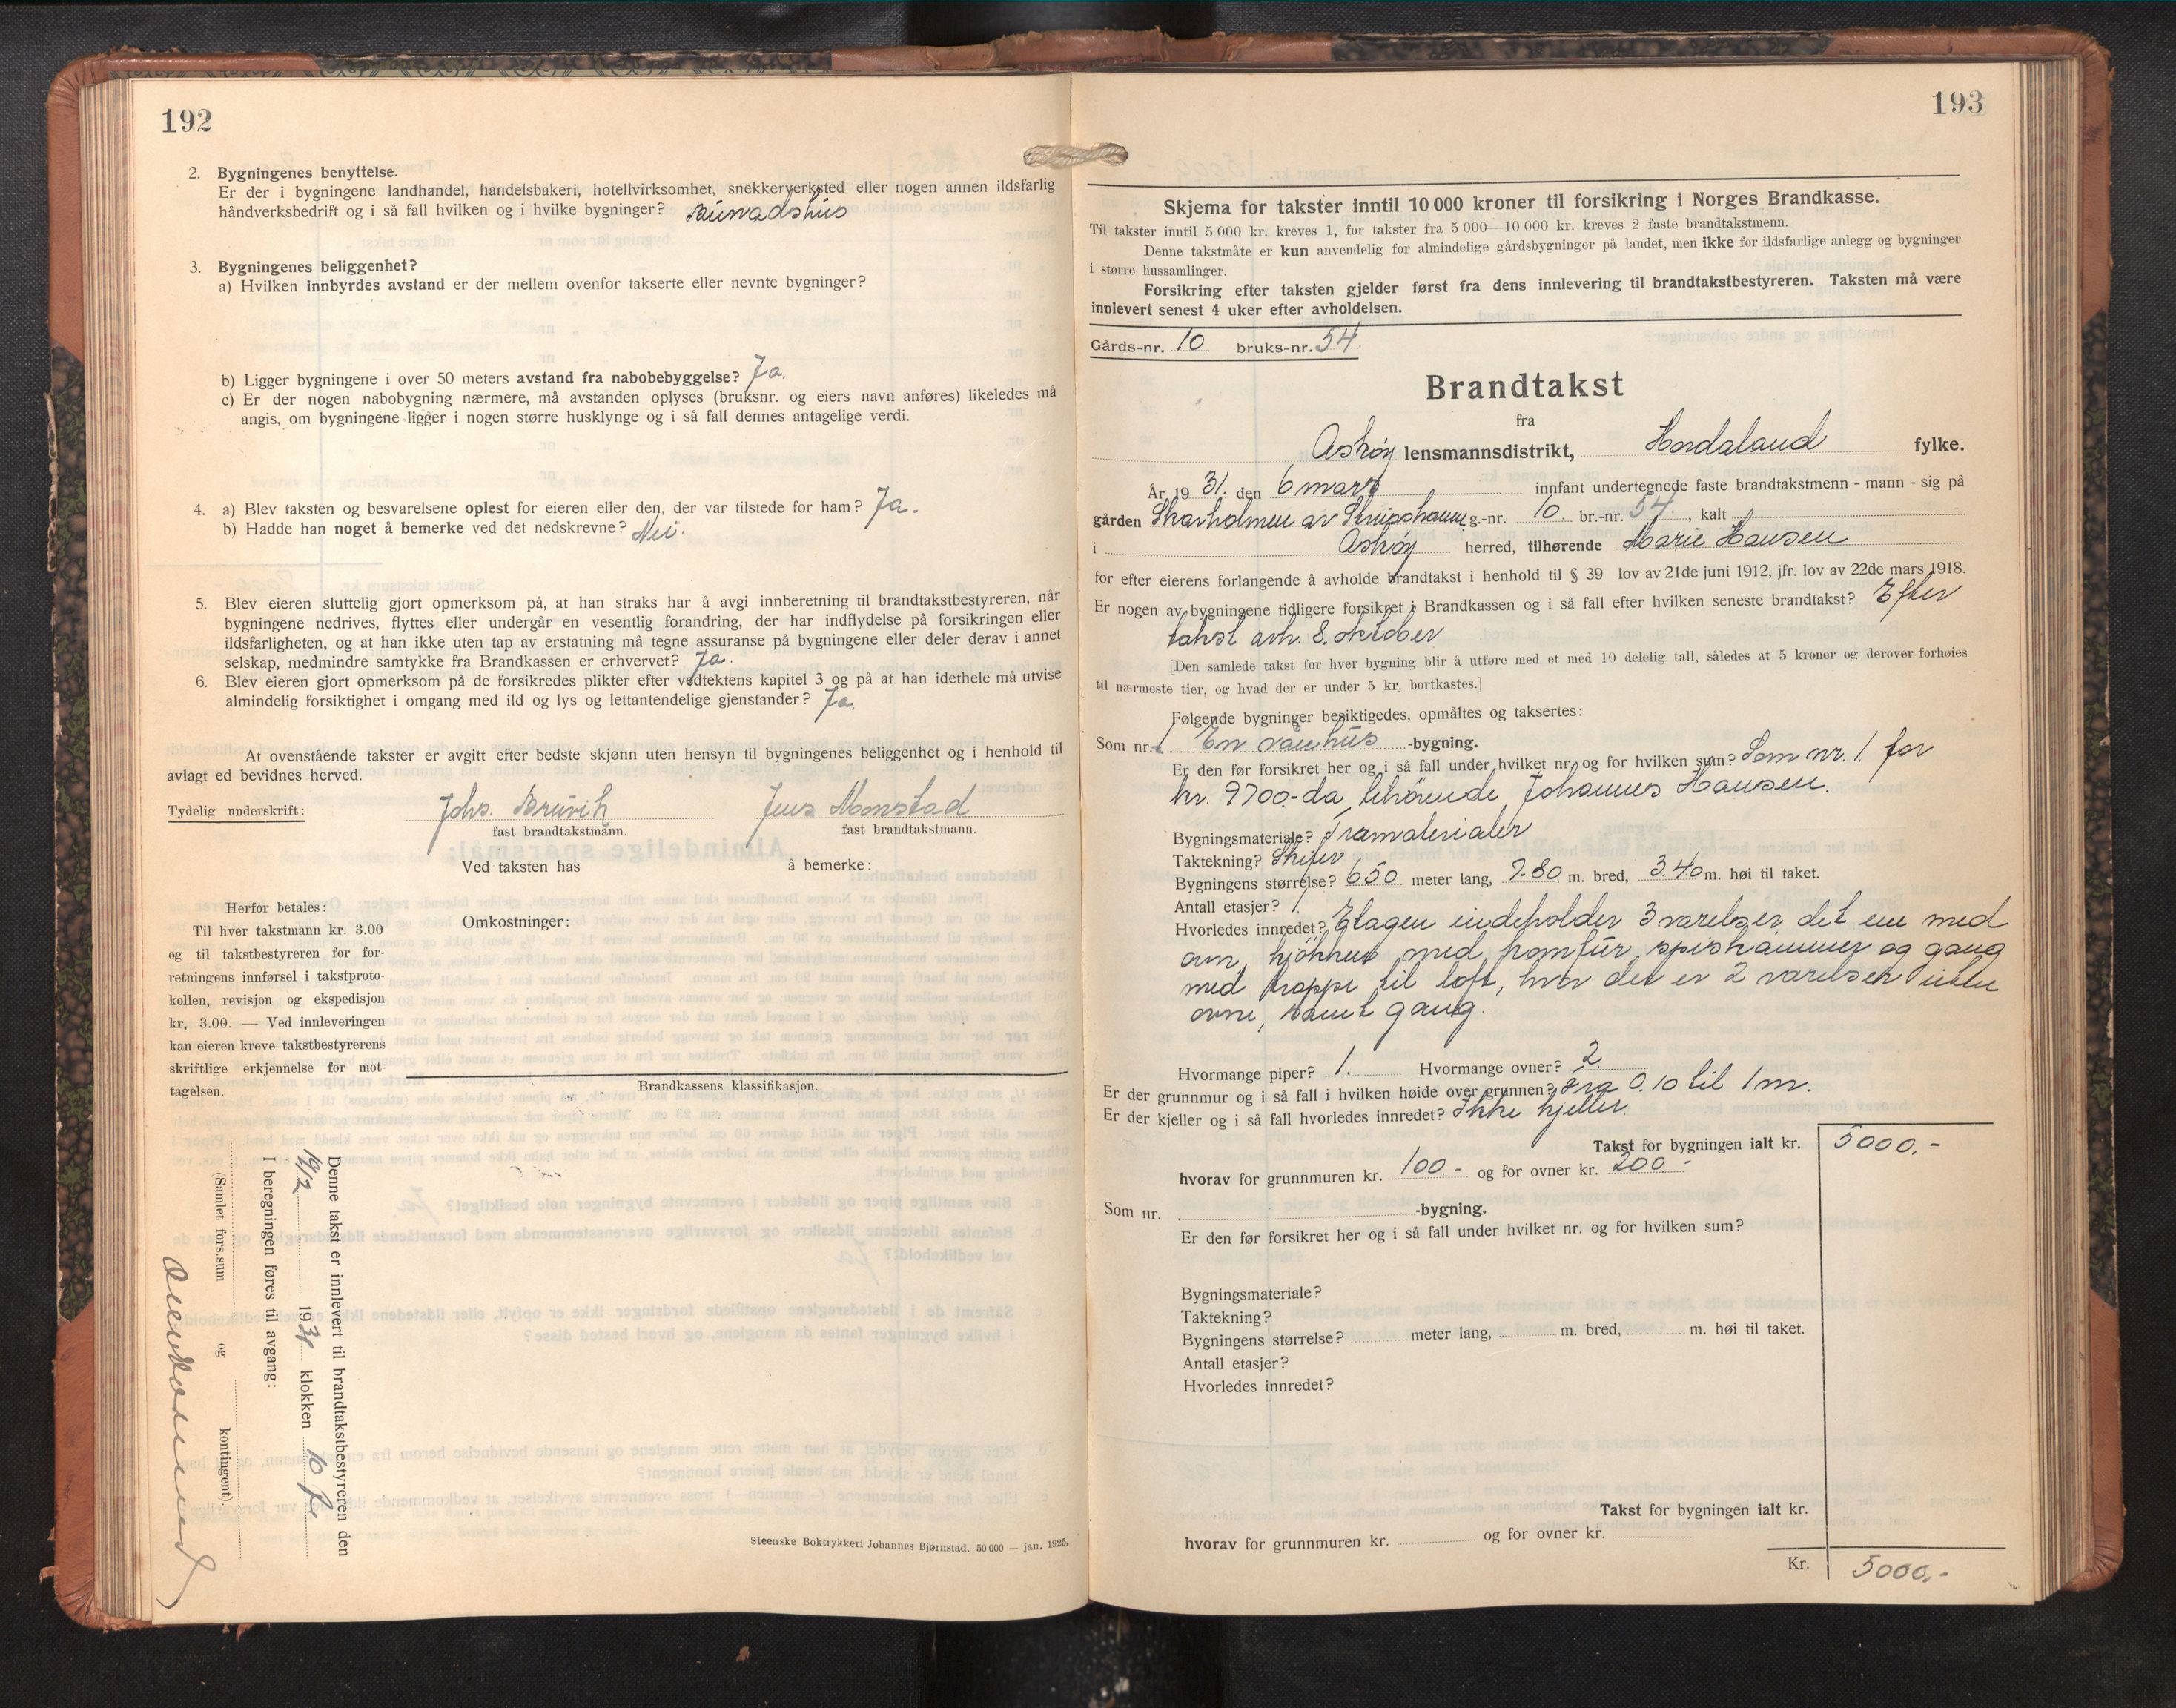 192
2. Bygningenes benyttelse.
Er der i bygningene landhandel, handelsbakeri, hotellvirksomhet, snekkerverksted eller nogen annen ildsfarlig
håndverksbedrift og i så fall hvilken og i hvilke bygninger?
3. Bygningenes beliggenhet?
a) Hvilken innbyrdes avstand er der mellem ovenfor takserte eller nevnte bygninger?
b) Ligger bygningene i over 50 meters avstand fra nabobebyggelse? Ja.
c) Er der nogen nabobygning nærmere, må avstanden oplyses (bruksnr. og eiers navn anføres) likeledes må
angis, om bygningene ligger i nogen større husklynge og i så fall dennes antagelige verdi.
4. a) Blev taksten og besvarelsene oplest for eieren eller den, der var tilstede for ham? Ja.
b) Hadde han noget å bemerke ved det nedskrevne? Nei.
5. Blev eieren sluttelig gjort opmerksom på, at han straks har å avgi innberetning til brandtakstbestyreren, når
bygningene nedrives, flyttes eller undergår en vesentlig forandring, der har indflydelse på forsikringen eller
ildsfarligheten, og at han ikke uten tap av erstatning må tegne assuranse på bygningene eller deler derav i annet
selskap, medmindre samtykke fra Brandkassen er erhvervet? Ja.
6. Blev eieren gjort opmerksom på de forsikredes plikter efter vedtektens kapitel 3 og på at han idethele må utvise
almindelig forsiktighet i omgang med ild og lys og lettantendelige gjenstander? Ja.
At ovenstående takster er avgitt efter bedste skjønn uten hensyn til bygningenes beliggenhet og i henhold til
avlagt ed bevidnes herved.
Tydelig underskrift: Johs. Brüvik Jens Monstad
fast brandtakstmann. fast brandtakstmann.
Ved taksten has å bemerke:
Herfor betales:
Til hver takstmann kr. 3.00
og til takstbestyreren for for-
retningens innførsel i takstproto-
kollen, revisjon og ekspedisjon
kr, 3.00. — Ved innleveringen
kan eieren kreve takstbestyrerens
skriftlige erkjennelse for mot-
tagelsen.
Omkostninger:
Brandkassens klassifikasjon.
Denne takst er innlevert til brandtakstbestyreren den
19/2 1931 klokken 10 f
I beregningen føres til avgang:
(Samlet fors.sum og kontingent).
Steenske Boktrykkeri Johannes Bjørnstad. 50 000 — jan. 1925.
193
Skjema for takster inntil 10 000 kroner til forsikring i Norges Brandkasse.
Til takster inntil 5 000 kr. kreves 1, for takster fra 5 000—10 000 kr. kreves 2 faste brandtakstmenn.
Denne takstmåte er kun anvendelig for almindelige gårdsbygninger på landet, men ikke for ildsfarlige anlegg og bygninger
i større hussamlinger.
Forsikring efter taksten gjelder først fra dens innlevering til brandtakstbestyreren. Taksten må være
innlevert senest 4 uker efter avholdelsen.
Gårds-nr. 10. bruks-nr. 54.
Brandtakst
fra
Askøy lensmannsdistrikt, Hordaland fylke.
År 19 31. den 6 mars innfant undertegnede faste brandtakstmenn - mann - sig på
gården Skarholmen av Strupshavn g.-nr. 10. br.-nr. 54. , kalt
i Askøy herred, tilhørende Marie Hansen
for efter eierens forlangende å avholde brandtakst i henhold til § 39 lov av 21de juni 1912, jfr. lov av 22de mars 1918.
Er nogen av bygningene tidligere forsikret i Brandkassen og i så fall efter hvilken seneste brandtakst? Efter
takst avh. 8. oktober
[Den samlede takst for hver bygning blir å utføre med et med 10 delelig tall, således at 5 kroner og derover forhøies
til nærmeste tier, og hvad der er under 5 kr. bortkastes.]
Følgende bygninger besiktigedes, opmåltes og taksertes:
Som nr. 1. En vånhus -bygning.
Er den før forsikret her og i så fall under hvilket nr. og for hvilken sum? Som nr. 1. for
kr. 9700.- da tilhørende Johannes Hansen.
Bygningsmateriale? Træmaterialer
Taktekning? Skifer
Bygningens størrelse? 650 meter lang, 7.80 m. bred, 3.40 m. høi til taket.
Antall etasjer? 1.
Hvorledes innredet? Etagen indeholder 3 værelser, det ene med
ovn, kjökken med komfür, spiskammer og gang
med trappe til loft, hvor det er 2 værelser uten
ovne, samt gang.
Hvormange piper? 1. Hvormange ovner? 2.
Er der grunnmur og i så fall i hvilken høide over grunnen? Fra 0.10 til 1 m.
Er der kjeller og i så fall hvorledes innredet? Ikke kjeller.
Takst for bygningen ialt kr. 5000.-
hvorav for grunnmuren kr. 100.- og for ovner kr. 200.-
Som nr. -bygning.
Er den før forsikret her og i så fall under hvilket nr. og for hvilken sum?
Bygningsmateriale?
Taktekning?
Bygningens størrelse? meter lang, m. bred, m. høi til taket.
Antall etasjer?
Hvorledes innredet?
Takst for bygningen ialt kr.
hvorav for grunnmuren kr. og for ovner kr.
Kr. 5000.-